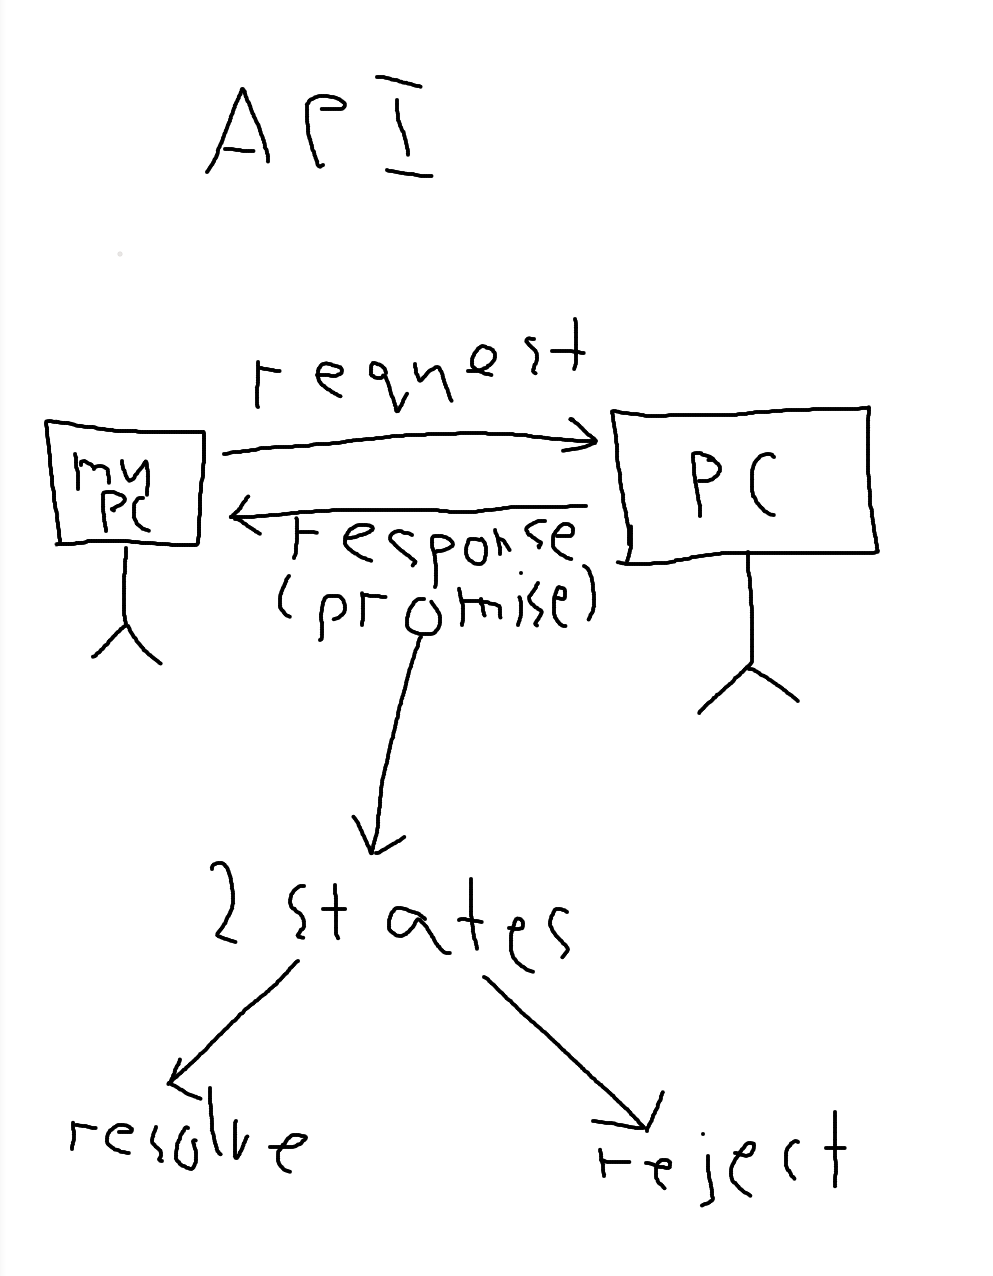 API
request
my
PC
PC
response
(promise)
2 states
resolve
reject